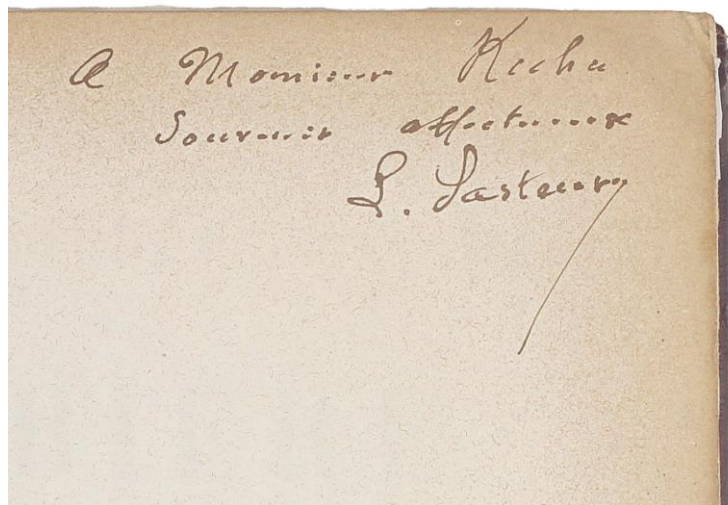 A Monsieur Kechu
Souvenir affectueux
L. Pasteur